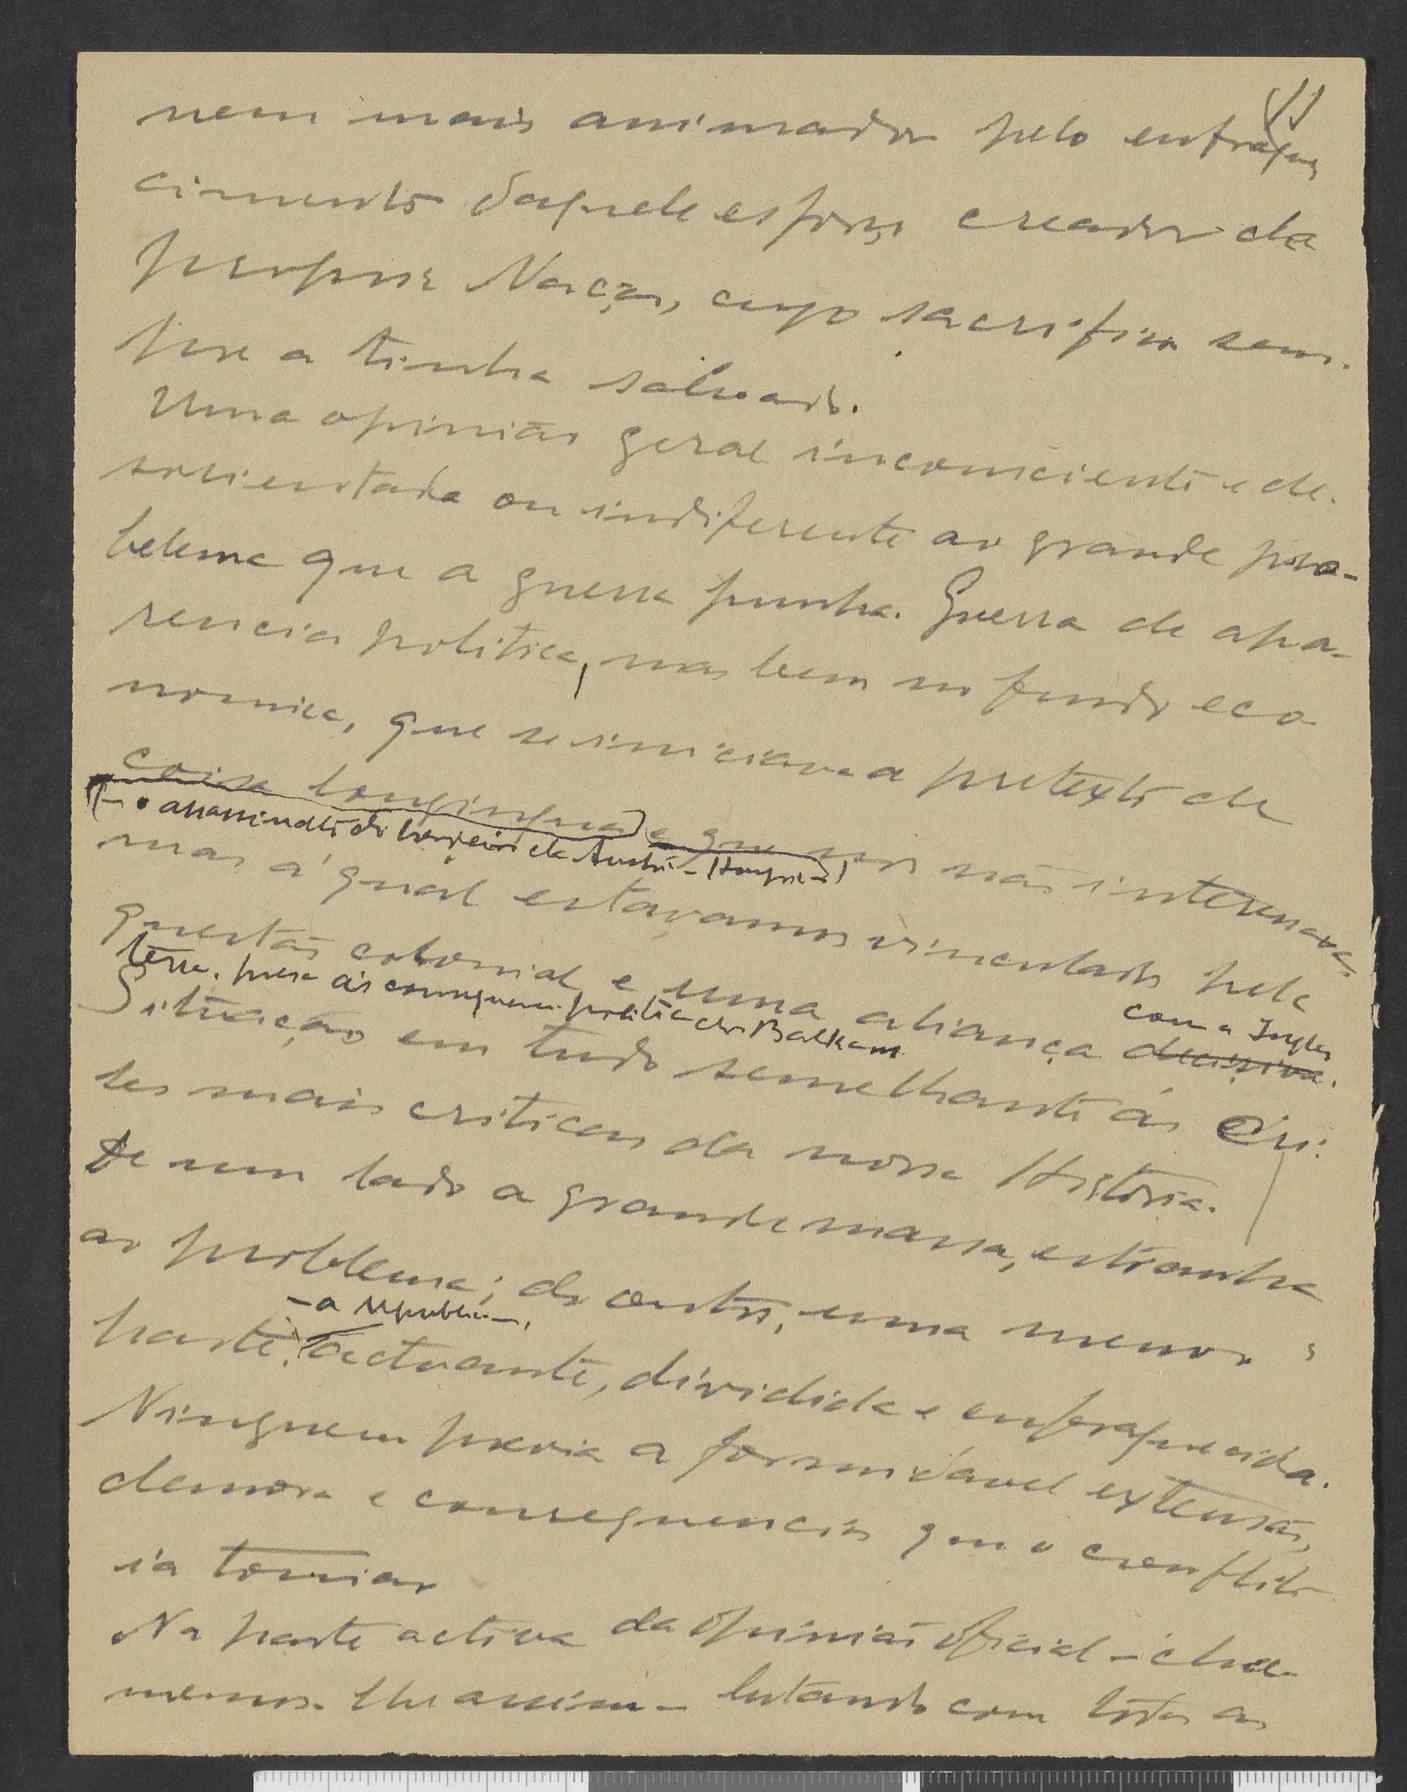 11
nem mais animador pelo enfraque
cimento daquele esforço creador da
propria Nação, cujo sacrificio sem-
pre a tinha salvado.
Uma opinião geral inconsciente e de-
sorientada ou indiferente ao grande pro-
blema que a guerra punha. Guerra de apa-
rencia politica, mas bem no fundo eco
nomica, que se iniciava a pretexto de
coisa longinqua e que nos não interessava
(- o assassinato do herdeiro da Austria-Hungria -)
mas á qual estavamos vinculados pela
questão colonial e uma aliança decisiva.
com a Ingla
terra. presa ás consequencias politicas dos Balkans
Situação em tudo semelhante ás Cri:
ses mais criticas da nossa Historia.
De um lado a grande massa, estranha
ao problema; do outro, uma menor
- a Republica -,
parte, actuante, dividida e enfraquecida.
Ninguem previa a formidavel extensão,
demora e consequencias que o conflito
ia tomar
Na parte activa da opinião oficial - cha-
memos-lhe assim - lutando com todas as